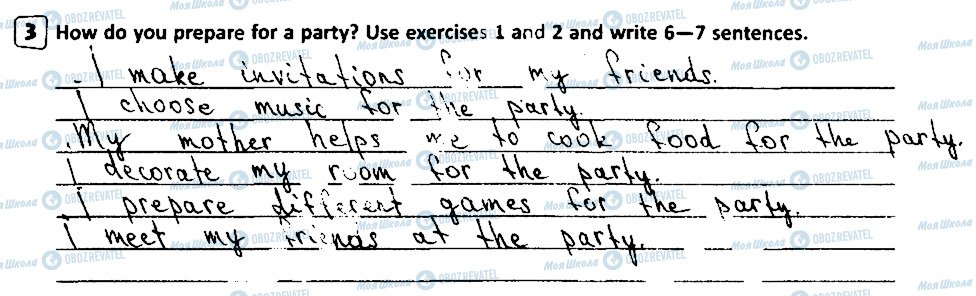 3 How do you prepare for a party? Use exercises 1 and 2 and write 6—7 sentences.
I make invitations for my friends.
I choose music for the party.
My mother helps me to cook food for the party.
I decorate my room for the party.
I prepare different games for the party.
I meet my friends at the party.
Моя Школа OBOZREVATEL